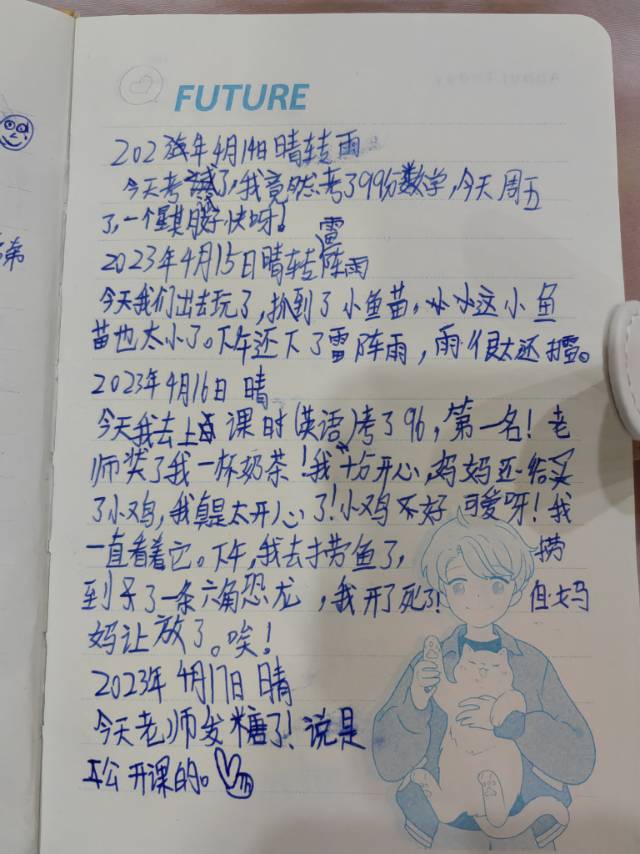 FUTURE
2023年4月14日晴转雨
今天考试了,我竟然考了99份数学,今天周五
了,一个星期好快呀!
2023年4月15日晴转雷阵雨
今天我们出去玩了,抓到了小鱼苗,这小鱼
苗也太小了。下午还下了雷阵雨,雨很大还打雷。
2023年4月16日 晴
今天我去上课时(英语)考了96,第一名!老
师奖了我一杯奶茶!我十分开心,妈妈还给买
了小鸡,我真是太开心了!小鸡不好可爱呀!我
一直看着它。下午,我去捞鱼了,捞
到了一条六角恐龙,我开了死了!但妈
妈让放了。唉!
2023年4月17日 晴
今天老师发糖了!说是
公开课的。